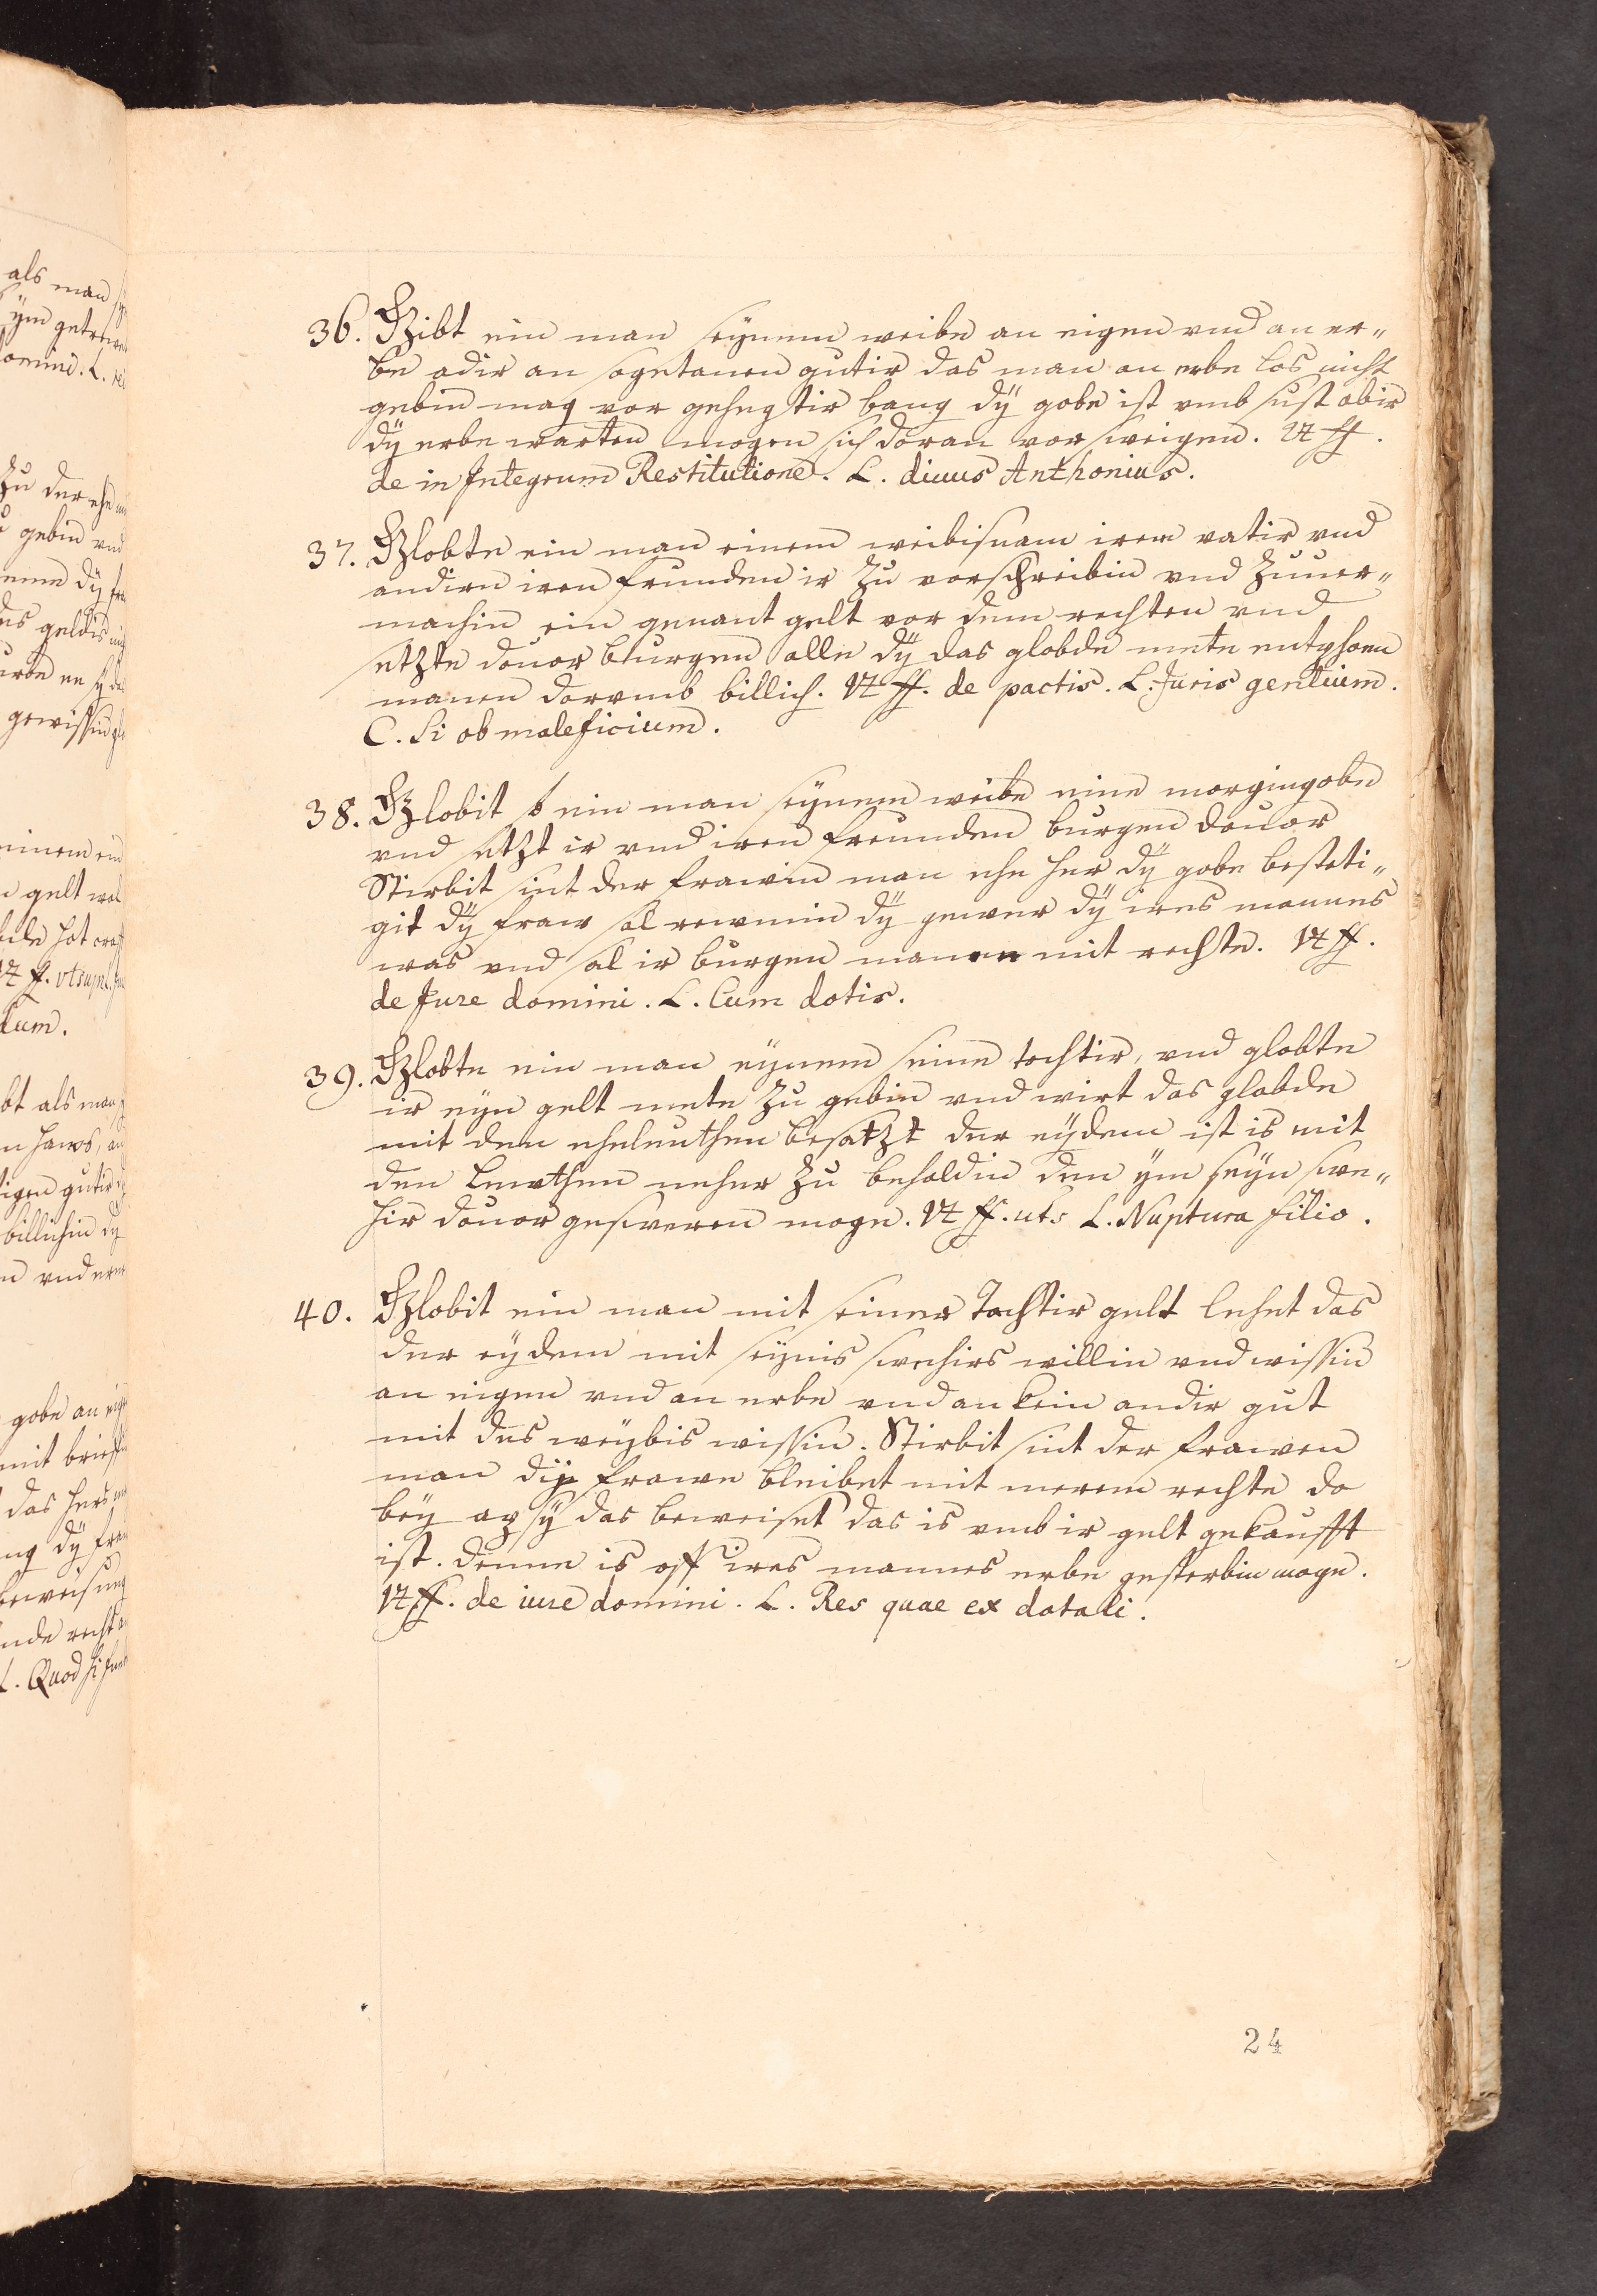 36. Gibt ein man seynem weibe an eigen vnd an er„
be adir an sogetanen gutir das man an erbe los nicht
gebin mag vor gehegtir bang dÿ gobe ist vmb sust abir
dÿ erbe warten mogen sich doran vorsweigen. Vt ff.
de in Integrum Restitutione. L. diuus Anthonius.
37. Globte ein man einem weibisnam irem vatir vnd
andirn iren frunden ir Zu vorschreibin vnd Zuuer„
machin ein genant gelt vor dem rechten vnd
setzte douor burgen alle dÿ das globde mete entphoen
manen dorvmb billich. Vt ff. de pactis. L. Juris gentium.
C. Si ob maleficium.
38. Globit ein man seynem weibe eine morgingobe
vnd setzt ir vnd iren freunden burgen douor
Stirbit sint der frawin man ehe her dÿ gobe besteti„
git dÿ fraw sal rewmin dÿ gewer dÿ ires mannes
was vnd sal ir burgen manen mit rechte. Vt ff.
de Jure domini. L. Cum dotis.
39. Globte ein man eynem seine tochtir, vnd globte
ir eyn gelt mete Zu gebin vnd wirt das globde
mit den eheleuthen besatzt der eÿdem ist is mit
den Lewthen neher Zu behaldin den ÿm seyn swe„
hir douor gesweren moge. Vt ff. uts L. Nuptura filio.
40. Globit ein man mit seiner Tochtir gelt lehet das
der eÿdem mit seÿnis swehirs willin vnd wissin
an eigen vnd an erbe vnd an kein andir gut
mit des weÿbis wissin. Stirbit sint der frawen
man dÿ frawe bleibet mit merem rechte do
beÿ ap sÿ das beweiset das is vmb ir gelt gekaufft
ist. denne is off ires mannes erbe gesterbin moge.
Vt ff. de iure domini. L. Res quae ex dotali.
24